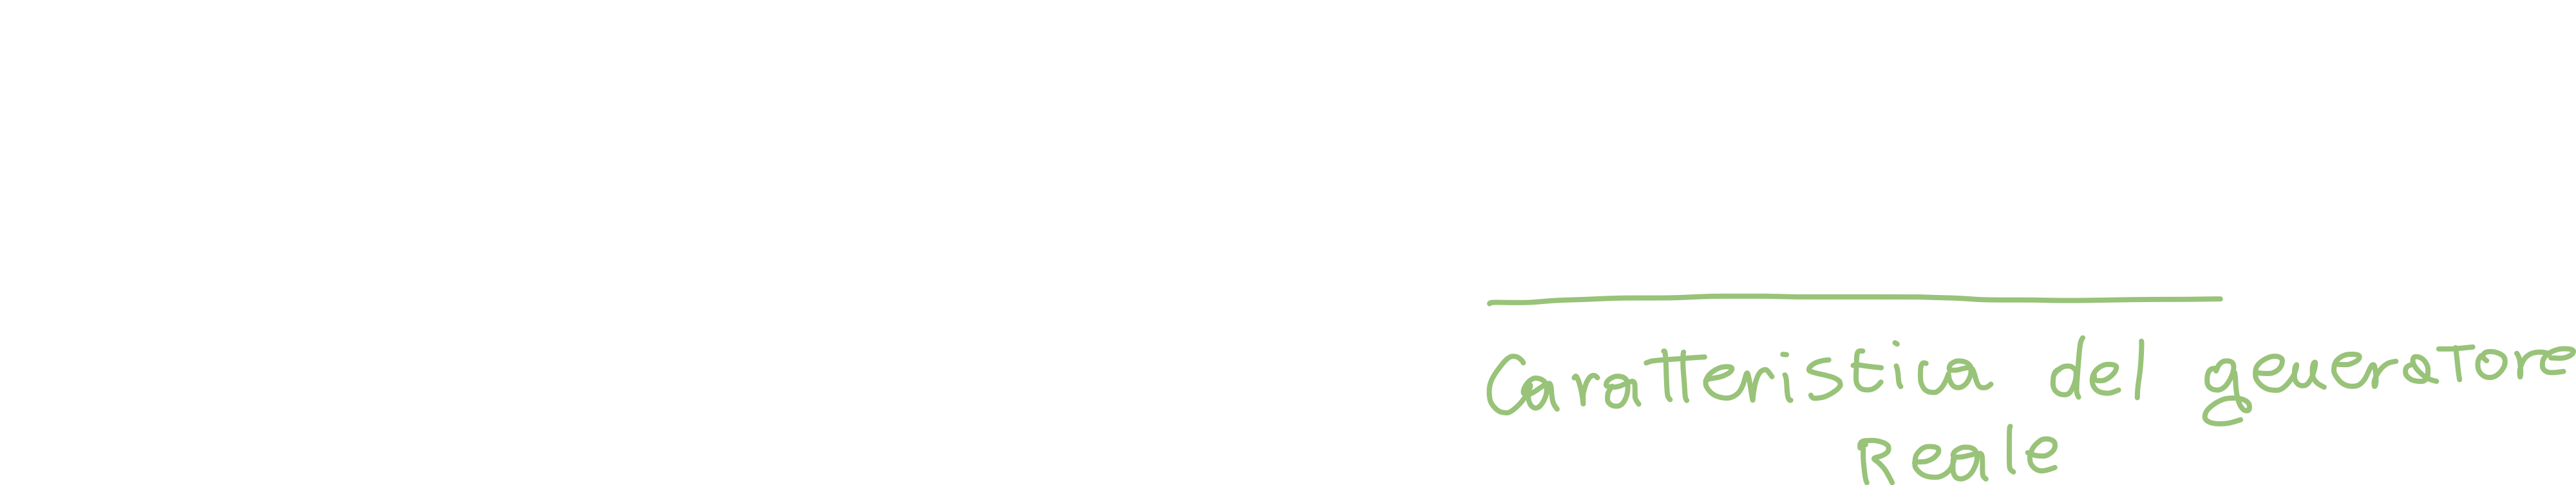 Caratteristica del generatore
Reale